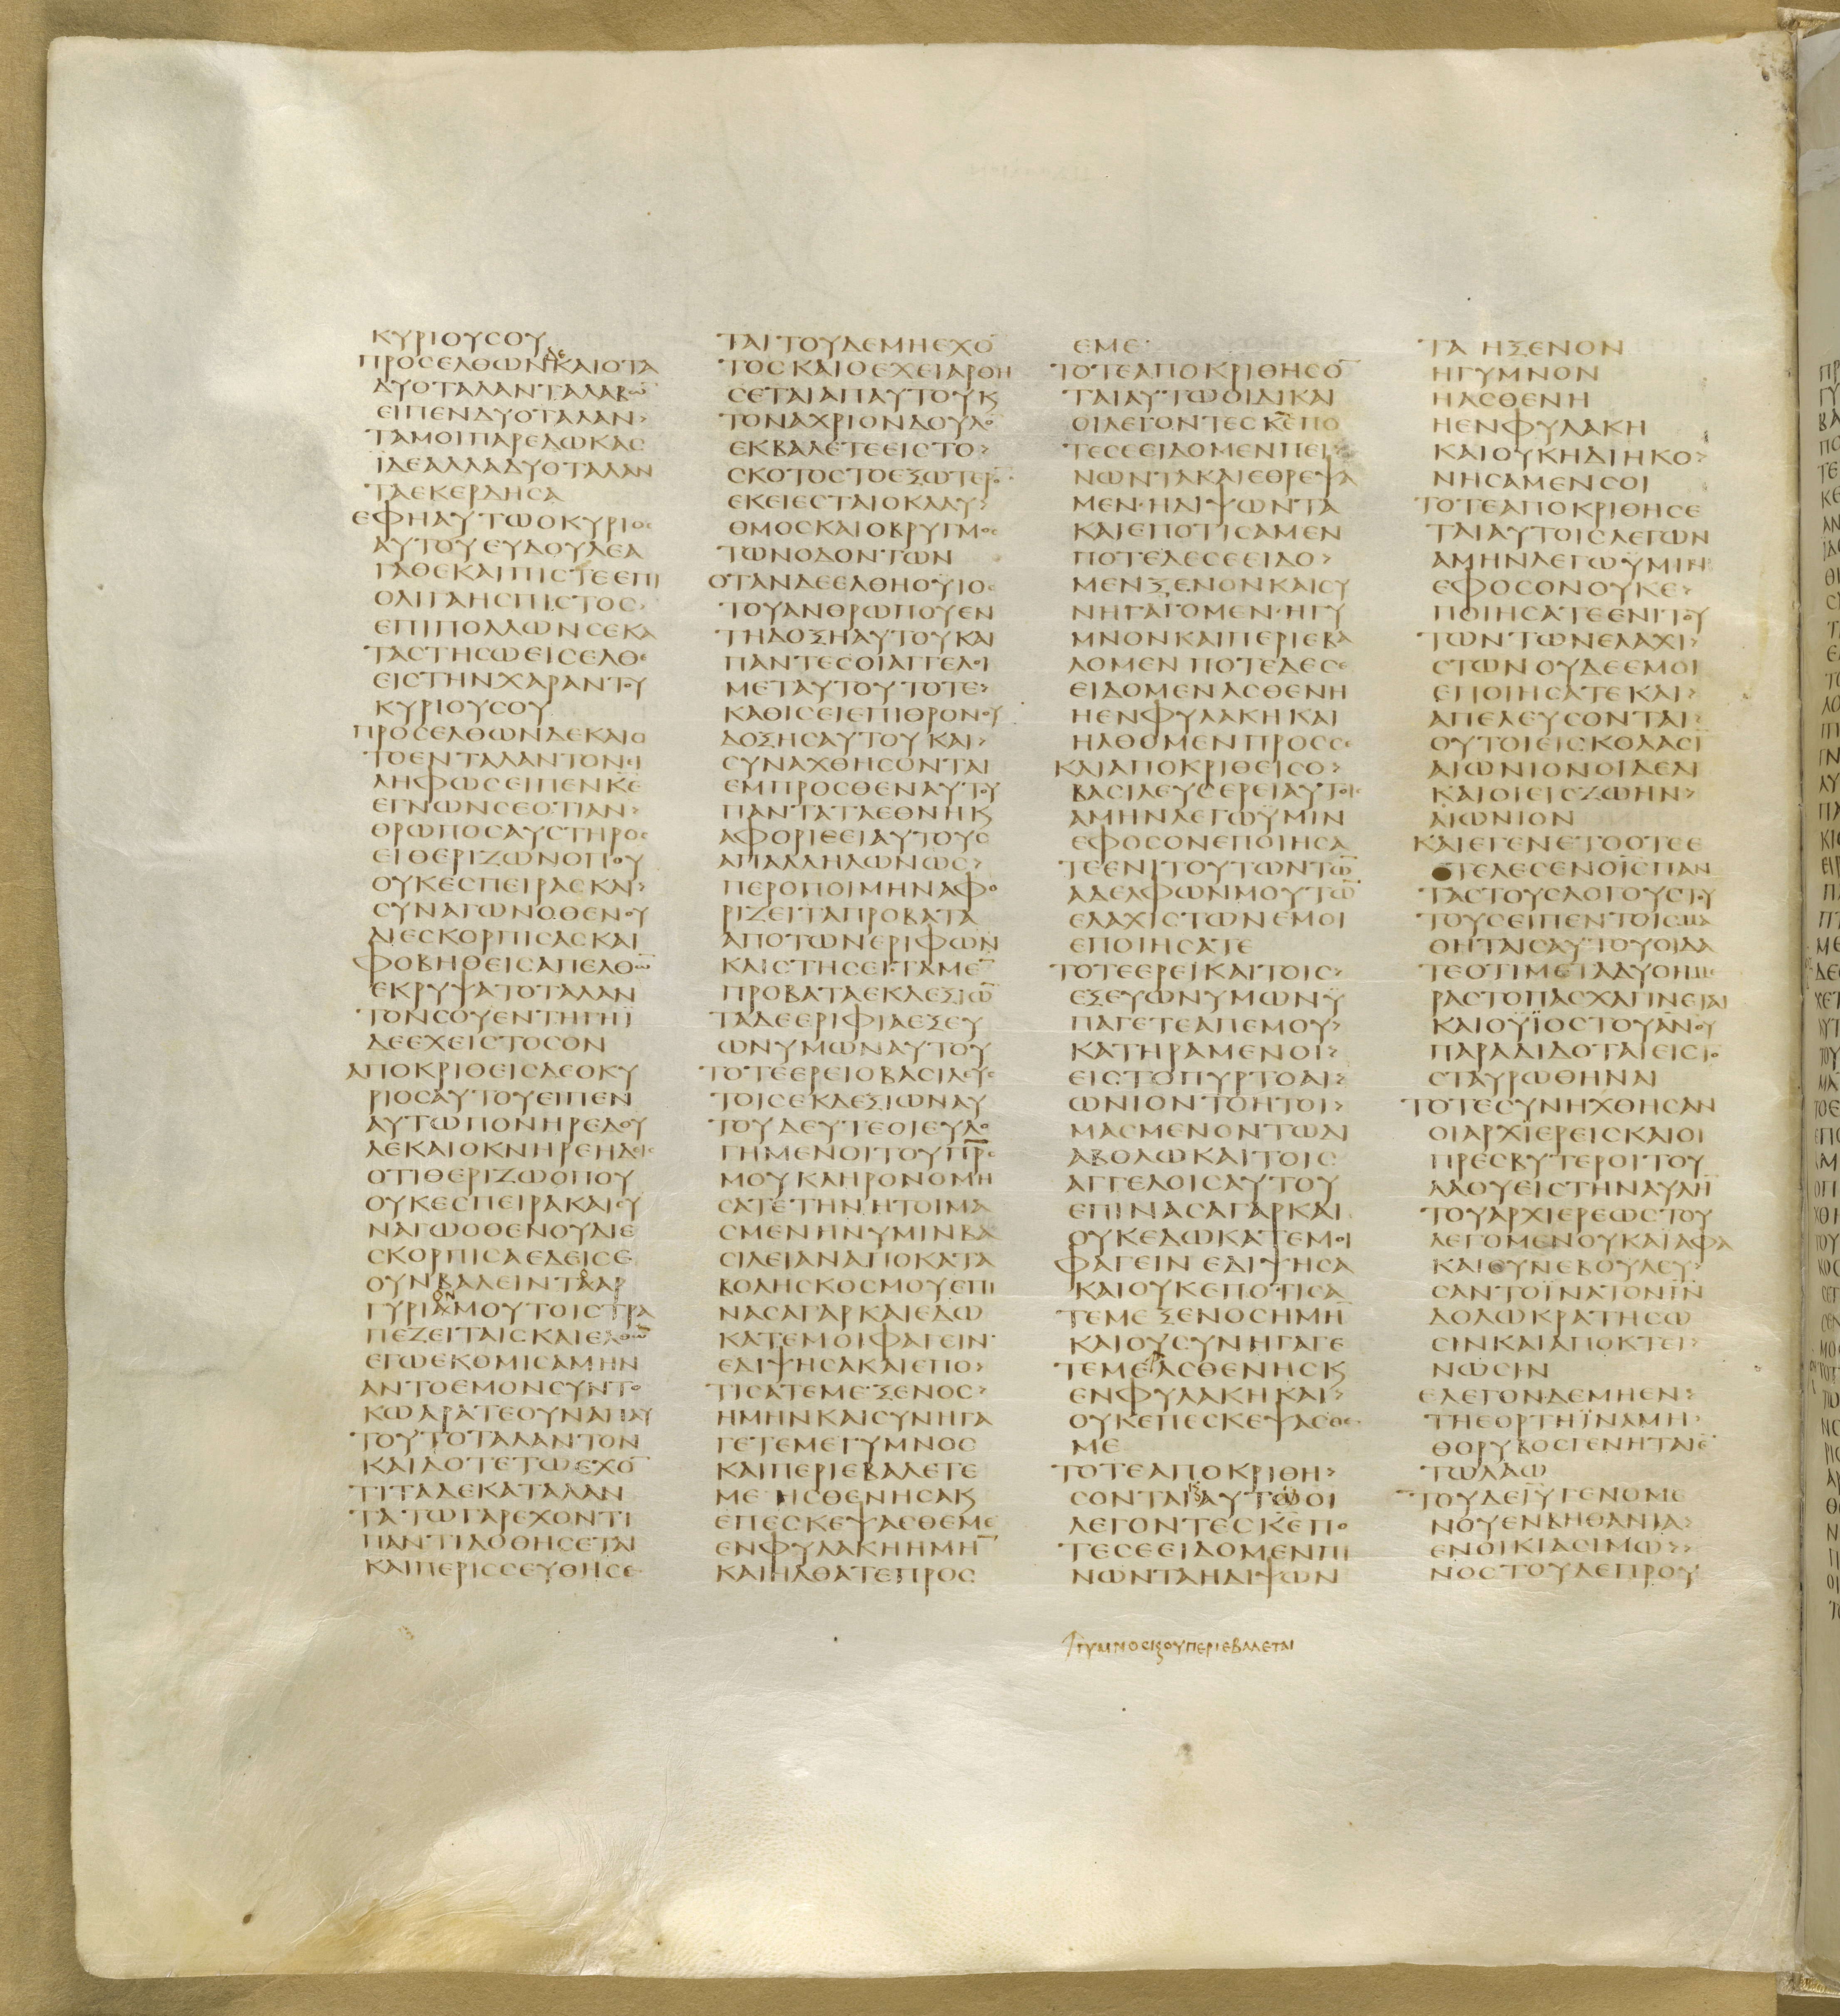 ΚΥΡΙΟΥϹΟΥ
ΠΡΟϹΕΛΘΩΝ ΔΕ ΚΑΙΟΤΑ
ΔΥΟΤΑΛΑΝΤΑΛΑΒΩ̅
ΕΙΠΕΝΔΥΟΤΑΛΑΝ>
ΤΑΜΟΙΠΑΡΕΔΩΚΑϹ
ΪΔΕΑΛΛΑΔΥΟΤΑΛΑΝ
ΤΑΕΚΕΡΔΗϹΑ
ΕΦΗΑΥΤΩΟΚΥΡΙΟϹ
ΑΥΤΟΥΕΥΔΟΥΛΕΑ
ΓΑΘΕΚΑΙΠΙϹΤΕΕΠΙ
ΟΛΙΓΑΗϹΠΙϹΤΟϹ
ΕΠΙΠΟΛΛΩΝϹΕΚΑ
ΤΑϹΤΗϹΩΕΙϹΕΛΘΕ
ΕΙϹΤΗΝΧΑΡΑΝΤΟΥ
ΚΥΡΙΟΥϹΟΥ
ΠΡΟϹΕΛΘΩΝΔΕΚΑΙΟ
ΤΟΕΝΤΑΛΑΝΤΟΝΕΙ
ΛΗΦΩϹΕΙΠΕΝΚΕ
ΕΓΝΩΝϹΕΟΤΙΑΝ>
ΘΡΩΠΟϹΑΥϹΤΗΡΟϹ
ΕΙΘΕΡΙΖΩΝΟΠΟΥ
ΟΥΚΕϹΠΕΙΡΑϹΚΑΙ>
ϹΥΝΑΓΩΝΟΘΕΝΟΥ
ΔΙΕϹΚΟΡΠΙϹΑϹΚΑΙ
ΦΟΒΗΘΕΙϹΑΠΕΛΘΩ̅
ΕΚΡΥΨΑΤΟΤΑΛΑΝ
ΤΟΝϹΟΥΕΝΤΗΓΗΪ
ΔΕΕΧΕΙϹΤΟϹΟΝ
ΑΠΟΚΡΙΘΕΙϹΔΕΟΚΥ
ΡΙΟϹΑΥΤΟΥΕΙΠΕΝ
ΑΥΤΩΠΟΝΗΡΕΔΟΥ
ΛΕΚΑΙΟΚΝΗΡΕΗΔΕΙϹ
ΟΤΙΘΕΡΙΖΩΟΠΟΥ
ΟΥΚΕϹΠΕΙΡΑΚΑΙϹΥ
ΝΑΓΩΟΘΕΝΟΥΔΙΕ
ϹΚΟΡΠΙϹΑΕΔΕΙϹΕ
ΟΥΝΒΑΛΕΙΝΤΑΑΡ
ΓΥΡΙΑΜΟΥΤΟΙϹΤΡΑ
ΠΕΖΕΙΤΑΙϹΚΑΙΕΛΘΩ̅
ΕΓΩΕΚΟΜΙϹΑΜΗΝ
ΑΝΤΟΕΜΟΝϹΥΝΤΟ
ΚΩΑΡΑΤΕΟΥΝΑΠΑΥ
ΤΟΥΤΟΤΑΛΑΝΤΟΝ
ΚΑΙΔΟΤΕΤΩΕΧΟ̅
ΤΙΤΑΔΕΚΑΤΑΛΑΝ
ΤΑΤΩΓΑΡΕΧΟΝΤΙ
ΠΑΝΤΙΔΟΘΗϹΕΤΑΙ
ΚΑΙΠΕΡΙϹϹΕΥΘΗϹΕ
ΤΑΙΤΟΥΔΕΜΗΕΧΟ̅
ΤΟϹΚΑΙΟΕΧΕΙΑΡΘΗ
ϹΕΤΑΙΑΠΑΥΤΟΥΚ
ΤΟΝΑΧΡΙΟΝΔΟΥΛΟ
ΕΚΒΑΛΕΤΕΕΙϹΤΟ>
ϹΚΟΤΟϹΤΟΕΞΩΤΕΡΟ
ΕΚΕΙΕϹΤΑΙΟΚΛΑΥ>
ΘΜΟϹΚΑΙΟΒΡΥΓΜΟϹ
ΤΩΝΟΔΟΝΤΩΝ
ΟΤΑΝΔΕΕΛΘΗΟΥΙΟϹ
ΤΟΥΑΝΘΡΩΠΟΥΕΝ
ΤΗΔΟΞΗΑΥΤΟΥΚΑΙ
ΠΑΝΤΕϹΟΙΑΓΓΕΛΟΙ
ΜΕΤΑΥΤΟΥΤΟΤΕ>
ΚΑΘΙϹΕΙΕΠΙΘΡΟΝΟΥ
ΔΟΞΗϹΑΥΤΟΥΚΑΙ>
ϹΥΝΑΧΘΗϹΟΝΤΑΙ
ΕΜΠΡΟϹΘΕΝΑΥΤΟΥ
ΠΑΝΤΑΤΑΕΘΝΗΚ
ΑΦΟΡΙϹΕΙΑΥΤΟΥϹ
ΑΠΑΛΛΗΛΩΝΩϹ>
ΠΕΡΟΠΟΙΜΗΝΑΦΟ
ΡΙΖΕΙΤΑΠΡΟΒΑΤΑ
ΑΠΟΤΩΝΕΡΙΦΩΝ
ΚΑΙϹΤΗϹΕΙΤΑΜΕ̅
ΠΡΟΒΑΤΑΕΚΔΕΞΙΩ̅
ΤΑΔΕΕΡΙΦΙΑΕΞΕΥ
ΩΝΥΜΩΝΑΥΤΟΥ
ΤΟΤΕΕΡΕΙΟΒΑϹΙΛΕΥϹ
ΤΟΙϹΕΚΔΕΞΙΩΝΑΥ
ΤΟΥΔΕΥΤΕΟΙΕΥΛΟ
ΓΗΜΕΝΟΙΤΟΥΠΡ̅Ϲ
ΜΟΥΚΛΗΡΟΝΟΜΗ
ϹΑΤΕΤΗΝΗΤΟΙΜΑ
ϹΜΕΝΗΝΥΜΙΝΒΑ
ϹΙΛΕΙΑΝΑΠΟΚΑΤΑ
ΒΟΛΗϹΚΟϹΜΟΥΕΠΙ
ΝΑϹΑΓΑΡΚΑΙΕΔΩ
ΚΑΤΕΜΟΙΦΑΓΕΙΝ
ΕΔΙΨΗϹΑΚΑΙΕΠΟ>
ΤΙϹΑΤΕΜΕΞΕΝΟϹ>
ΗΜΗΝΚΑΙϹΥΝΗΓΑ
ΓΕΤΕΜΕΓΥΜΝΟϹ
ΚΑΙΠΕΡΙΕΒΑΛΕΤΕ
ΜΕΗϹΘΕΝΗϹΑΚ
ΕΠΕϹΚΕΨΑϹΘΕΜΕ
ΕΝΦΥΛΑΚΗΗΜΗ̅
ΚΑΙΗΛΘΑΤΕΠΡΟϹ
ΕΜΕ
ΤΟΤΕΑΠΟΚΡΙΘΗϹΟ̅
ΤΑΙΑΥΤΩΟΙΔΙΚΑΙ
ΟΙΛΕΓΟΝΤΕϹΚΕ̅ΠΟ
ΤΕϹΕΕΙΔΟΜΕΝΠΕΙ>
ΝΩΝΤΑΚΑΙΕΘΡΕΨΑ
ΜΕΝΗΔΙΨΩΝΤΑ
ΚΑΙΕΠΟΤΙϹΑΜΕΝ
ΠΟΤΕΔΕϹΕΕΙΔΟ>
ΜΕΝΞΕΝΟΝΚΑΙϹΥ
ΝΗΓΑΓΟΜΕΝΗΓΥ
ΜΝΟΝΚΑΙΠΕΡΙΕΒΑ
ΛΟΜΕΝΠΟΤΕΔΕϹΕ
ΕΙΔΟΜΕΝΑϹΘΕΝΗ
ΗΕΝΦΥΛΑΚΗΚΑΙ
ΗΛΘΟΜΕΝΠΡΟϹϹΕ
ΚΑΙΑΠΟΚΡΙΘΕΙϹΟ>
ΒΑϹΙΛΕΥϹΕΡΕΙΑΥΤΟΙϹ
ΑΜΗΝΛΕΓΩΫΜΙΝ
ΕΦΟϹΟΝΕΠΟΙΗϹΑ
ΤΕΕΝΙΤΟΥΤΩΝΤΩ̅
ΑΔΕΛΦΩΝΜΟΥΤΩ̅
ΕΛΑΧΙϹΤΩΝΕΜΟΙ
ΕΠΟΙΗϹΑΤΕ
ΤΟΤΕΕΡΕΙΚΑΙΤΟΙϹ>
ΕΞΕΥΩΝΥΜΩΝΫ
ΠΑΓΕΤΕΑΠΕΜΟΥ>
ΚΑΤΗΡΑΜΕΝΟΙ>
ΕΙϹΤΟΠΥΡΤΟΑΙ>
ΩΝΙΟΝΤΟΗΤΟΙ>
ΜΑϹΜΕΝΟΝΤΩΔΙ
ΑΒΟΛΩΚΑΙΤΟΙϹ
ΑΓΓΕΛΟΙϹΑΥΤΟΥ
ΕΠΙΝΑϹΑΓΑΡΚΑΙ
ΟΥΚΕΔΩΚΑΤΕΜΟΙ
ΦΑΓΕΙΝΕΔΙΨΗϹΑ
ΚΑΙΟΥΚΕΠΟΤΙϹΑ
ΤΕΜΕΞΕΝΟϹΗΜΗ̅
ΚΑΙΟΥϹΥΝΗΓΑΓΕ
ΤΕΜΕΑϹΘΕΝΗϹΚ
ΕΝΦΥΛΑΚΗΚΑΙ>
ΟΥΚΕΠΕϹΚΕΨΑϹΘΕ
ΜΕ
ΤΟΤΕΑΠΟΚΡΙΘΗ>
ϹΟΝΤΑΙΚΑΥΤΟΙΟΙ
ΛΕΓΟΝΤΕϹΚΕΠΟ
ΤΕϹΕΕΙΔΟΜΕΝΠΙ
ΝΩΝΤΑΗΔΙΨΩΝ
ΓΥΜΝΟϹΚΟΥΠΕΡΙΕΒΑΛΕΤΑΙ
ΤΑ ΗΞΕΝΟΝ
ΗΓΥΜΝΟΝ
ΗΑϹΘΕΝΗ
ΗΕΝΦΥΛΑΚΗ
ΚΑΙΟΥΚΗΔΙΗΚΟ>
ΝΗϹΑΜΕΝϹΟΙ
ΤΟΤΕΑΠΟΚΡΙΘΗϹΕ
ΤΑΙΑΥΤΟΙϹΛΕΓΩΝ
ΑΜΗΝΛΕΓΩΫΜΙΝ
ΕΦΟϹΟΝΟΥΚΕ>
ΠΟΙΗϹΑΤΕΕΝΙΤΟΥ
ΤΩΝΤΩΝΕΛΑΧΙ>
ϹΤΩΝΟΥΔΕΕΜΟΙ
ΕΠΟΙΗϹΑΤΕΚΑΙ>
ΑΠΕΛΕΥϹΟΝΤΑΙ>
ΟΥΤΟΙΕΙϹΚΟΛΑϹΙ̅
ΑΙΩΝΙΟΝΟΙΔΕΔΙ
ΚΑΙΟΙΕΙϹΖΩΗΝ>
ΑΙΩΝΙΟΝ
ΚΑΙΕΓΕΝΕΤΟΟΤΕΕ
ΤΕΛΕϹΕΝΟΙϹΠΑΝ
ΤΑϹΤΟΥϹΛΟΓΟΥϹΤΟΥ
ΤΟΥϹΕΙΠΕΝΤΟΙϹΜΑ
ΘΗΤΑΙϹΑΥΤΟΥΟΙΔΑ
ΤΕΟΤΙΜΕΤΑΔΥΟΗΜΕ
ΡΑϹΤΟΠΑϹΧΑΓΙΝΕΤΑΙ
ΚΑΙΟΫΪΟϹΤΟΥΑΝΟΥ
ΠΑΡΑΔΙΔΟΤΑΙΕΙϹΤΟ
ϹΤΑΥΡΩΘΗΝΑΙ
ΤΟΤΕϹΥΝΗΧΘΗϹΑΝ
ΟΙΑΡΧΙΕΡΕΙϹΚΑΙΟΙ
ΠΡΕϹΒΥΤΕΡΟΙΤΟΥ
ΛΑΟΥΕΙϹΤΗΝΑΥΛΗ̅
ΤΟΥΑΡΧΙΕΡΕΩϹΤΟΥ
ΛΕΓΟΜΕΝΟΥΚΑΙΑΦΑ
ΚΑΙϹΥΝΕΒΟΥΛΕΥ>
ϹΑΝΤΟΪΝΑΤΟΝΙ̅Ν̅
ΔΟΛΩΚΡΑΤΗϹΩ
ϹΙΝΚΑΙΑΠΟΚΤΕΙ>
ΝΩϹΙΝ
ΕΛΕΓΟΝΔΕΜΗΕΝ>
ΤΗΕΟΡΤΗΪΝΑΜΗ>
ΘΟΡΥΒΟϹΓΕΝΗΤΑΙΕ̅
ΤΩΛΑΩ
ΤΟΥΔΕΙ̅Υ̅ΓΕΝΟΜΕ
ΝΟΥΕΝΒΗΘΑΝΙΑ>
ΕΝΟΙΚΙΑϹΙΜΩ>>
ΝΟϹΤΟΥΛΕΠΡΟΥ